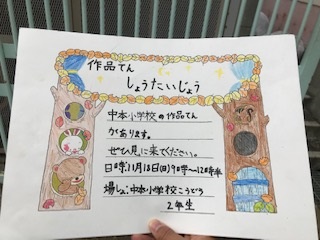 作品てん
しょうたいじょう
中本小学校の作品てん
があります。
ぜひ見に来てください。
日時:11月18日(日)9時〜12時半
場しょ:中本小学校こうどう
2年生